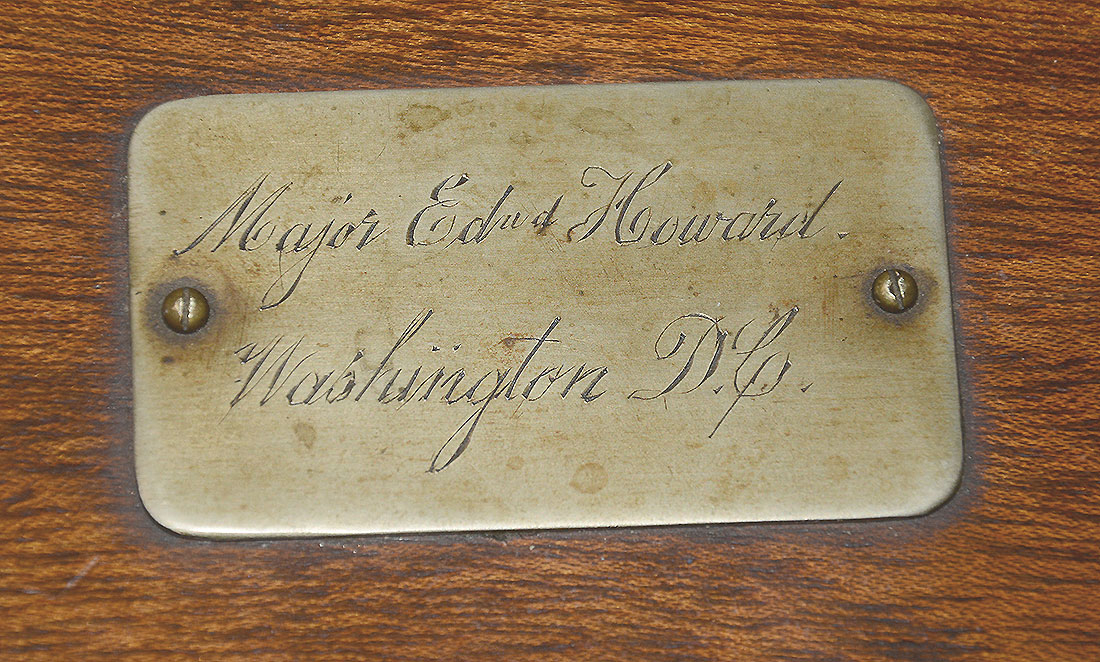 Major Edwd Howard.
Washington D.C.